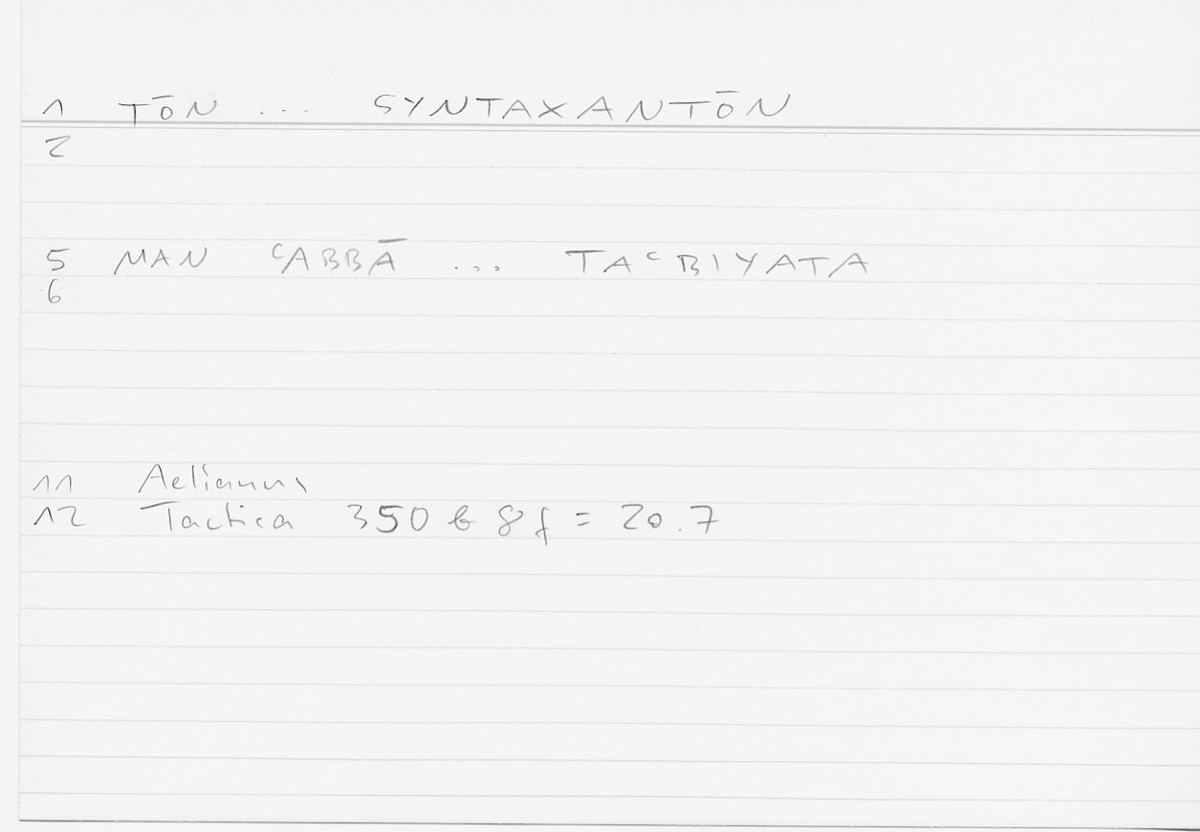 1 TŌN ... SYNTAXANTŌN
2
5 MAN ʿABBĀ ... TAʿBIYATA
6
11 Aelianus
12 Tactica 350 b 8 f = 20.7